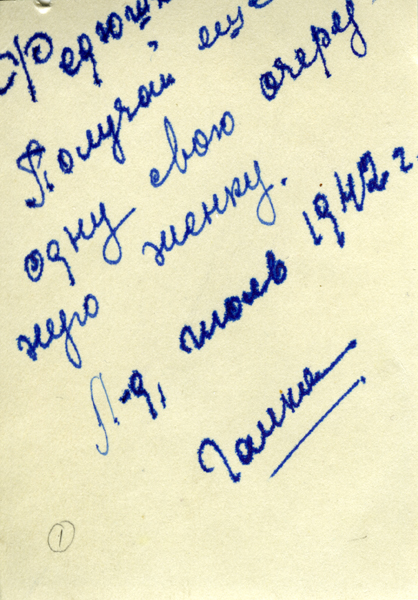 Федюшк
Получай еще
одну свою очеред-
ную женку.
Л-д, июль 1942 г.
Галка
1